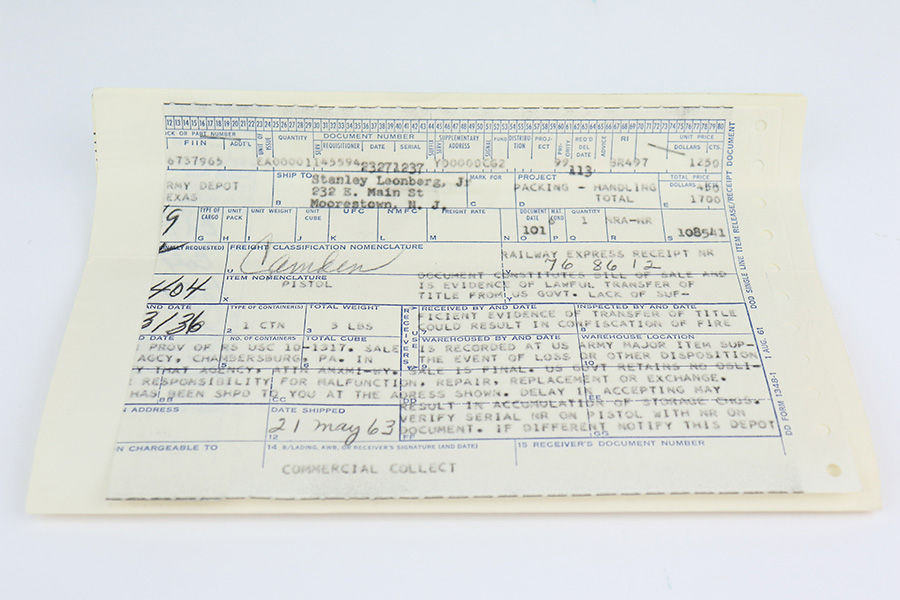 12 13 14 15 16 17 18 19 20 21 22 23 24 25 26 27 28 29 30 31 32 33 34 35 36 37 38 39 40 41 42 43 44 45 46 47 48 49 50 51 52 53 54 55 56 57 58 59 60 61 62 63 64 65 66 67 68 69 70 71 72 73 74 75 76 77 78 79 80
CK OR PART NUMBER UNIT OF ISSUE QUANTITY DOCUMENT NUMBER SUPPLEMENTARY ADDRESS SIGNAL FUND DISTRIBUTION PROJECT PRIORITY REQ'D DEL DATE ADVICE RI UNIT PRICE
FIIN ADD'L SERV REQUISITIONER DATE SERIAL DOLLARS CTS.
6737965 EA00001145594 Y00000CG2 99 BR497 1250
23271237 113
SHIP TO Stanley Leonberg, Jr MARK FOR PROJECT TOTAL PRICE
RMY DEPOT 232 E. Main St PACKING - HANDLING DOLLARS 450 CTS.
EXAS B Moorestown, N. J. C D TOTAL 1700
TYPE OF CARGO UNIT PACK UNIT WEIGHT UNIT CUBE UFC NMFC FREIGHT RATE DOCUMENT DATE MAT. COND QUANTITY
9 6 1 NRA-NR
G H I J K L M 101 O P Q R S 108541
REQUESTED) FREIGHT CLASSIFICATION NOMENCLATURE RAILWAY EXPRESS RECEIPT NR
U Camden V 76 86 12
ITEM NOMENCLATURE DOCUMENT CONSTITUTES BILL OF SALE AND
404 PISTOL IS EVIDENCE OF LAWFUL TRANSFER OF
X Y TITLE FROM US GOVT. LACK OF SUF-
AND DATE TYPE OF CONTAINER(S) TOTAL WEIGHT RECEIVER'S USE RECEIVED BY AND DATE INSPECTED BY AND DATE
3/36 FICIENT EVIDENCE OF TRANSFER OF TITLE
2 1 CTN 3 3 LBS 7 COULD RESULT IN CONFISCATION OF FIRE
D DATE NO. OF CONTAINERS TOTAL CUBE WAREHOUSED BY AND DATE WAREHOUSE LOCATION
PROV OF RS USC 10-1317. SALE IS RECORDED AT US ARMY MAJOR ITEM SUP-
AGCY, CHAMBERSBURG, PA. IN THE EVENT OF LOSS OR OTHER DISPOSITION
Y THAT AGENCY, ATTN AMXMI-WY. SALE IS FINAL. US GOVT RETAINS NO OBLI-
RESPONSIBILITY FOR MALFUNCTION, REPAIR, REPLACEMENT OR EXCHANGE.
HAS BEEN SHPD TO YOU AT THE ADRESS SHOWN. DELAY IN ACCEPTING MAY
BB CC DD RESULT IN ACCUMULATION OF STORAGE CHGS. EE
N ADDRESS DATE SHIPPED VERIFY SERIAL NR ON PISTOL WITH NR ON
21 May 63 DOCUMENT. IF DIFFERENT NOTIFY THIS DEPOT
12 FF GG
N CHARGEABLE TO 14 B/LADING, AWB, OR RECEIVER'S SIGNATURE (AND DATE) 15 RECEIVER'S DOCUMENT NUMBER
COMMERCIAL COLLECT
DD FORM 1348-1 1 AUG. 61 DOD SINGLE LINE ITEM RELEASE/RECEIPT DOCUMENT